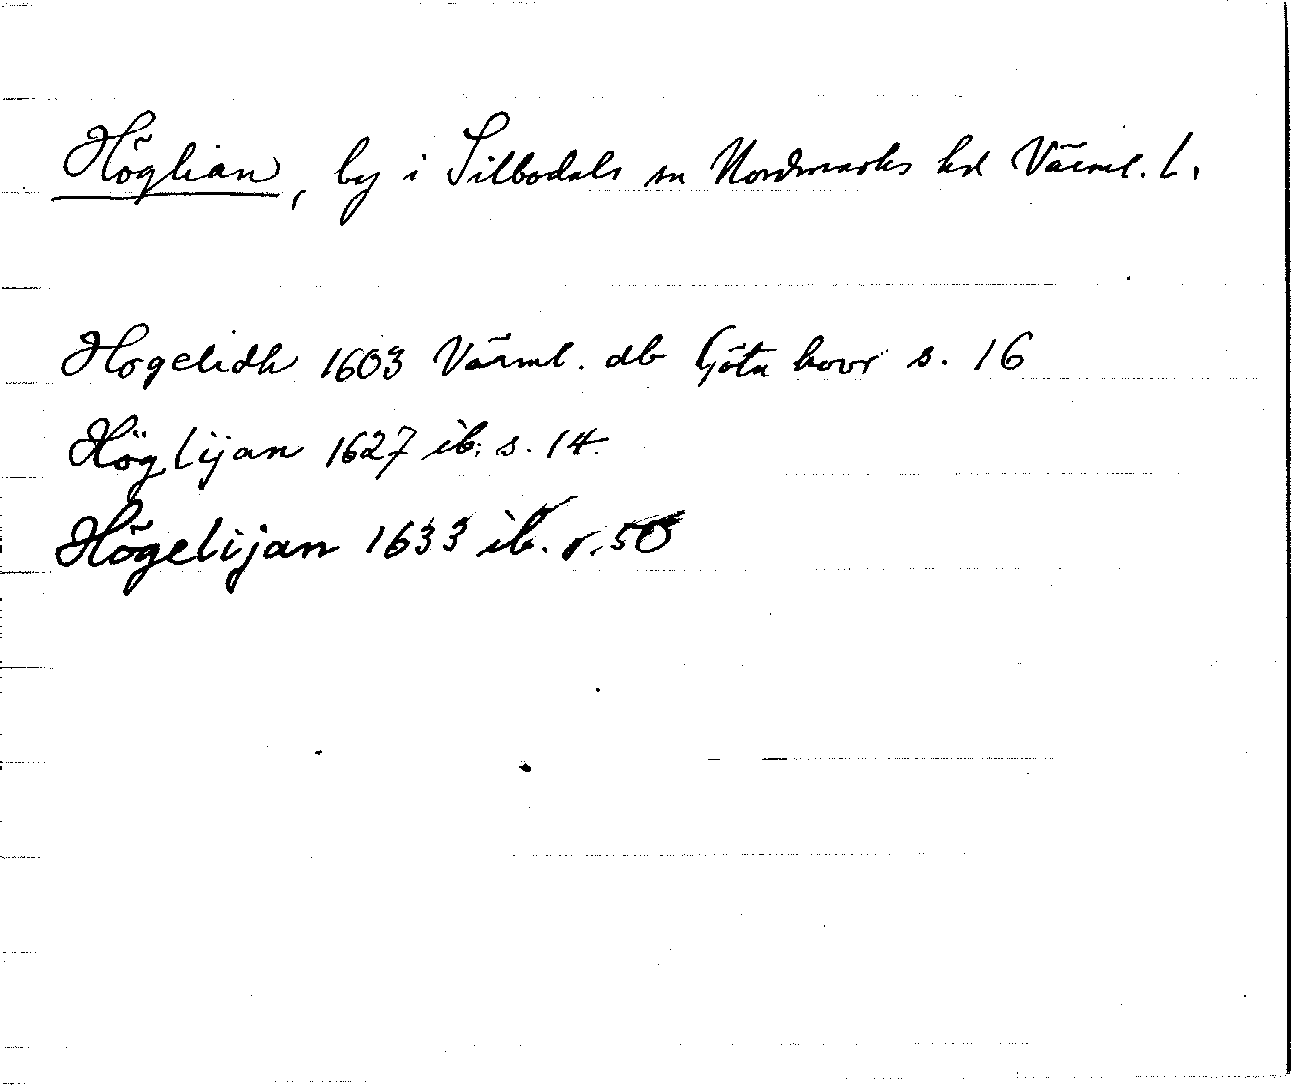 Höglian, by i Silbodals sn Nordmarks hd Värml. L.
Hogelidh 1603 Värml. db Göta hovr s. 16
Höglijan 1627 ib. s. 14
Högelijan 1633 ib. s. 50